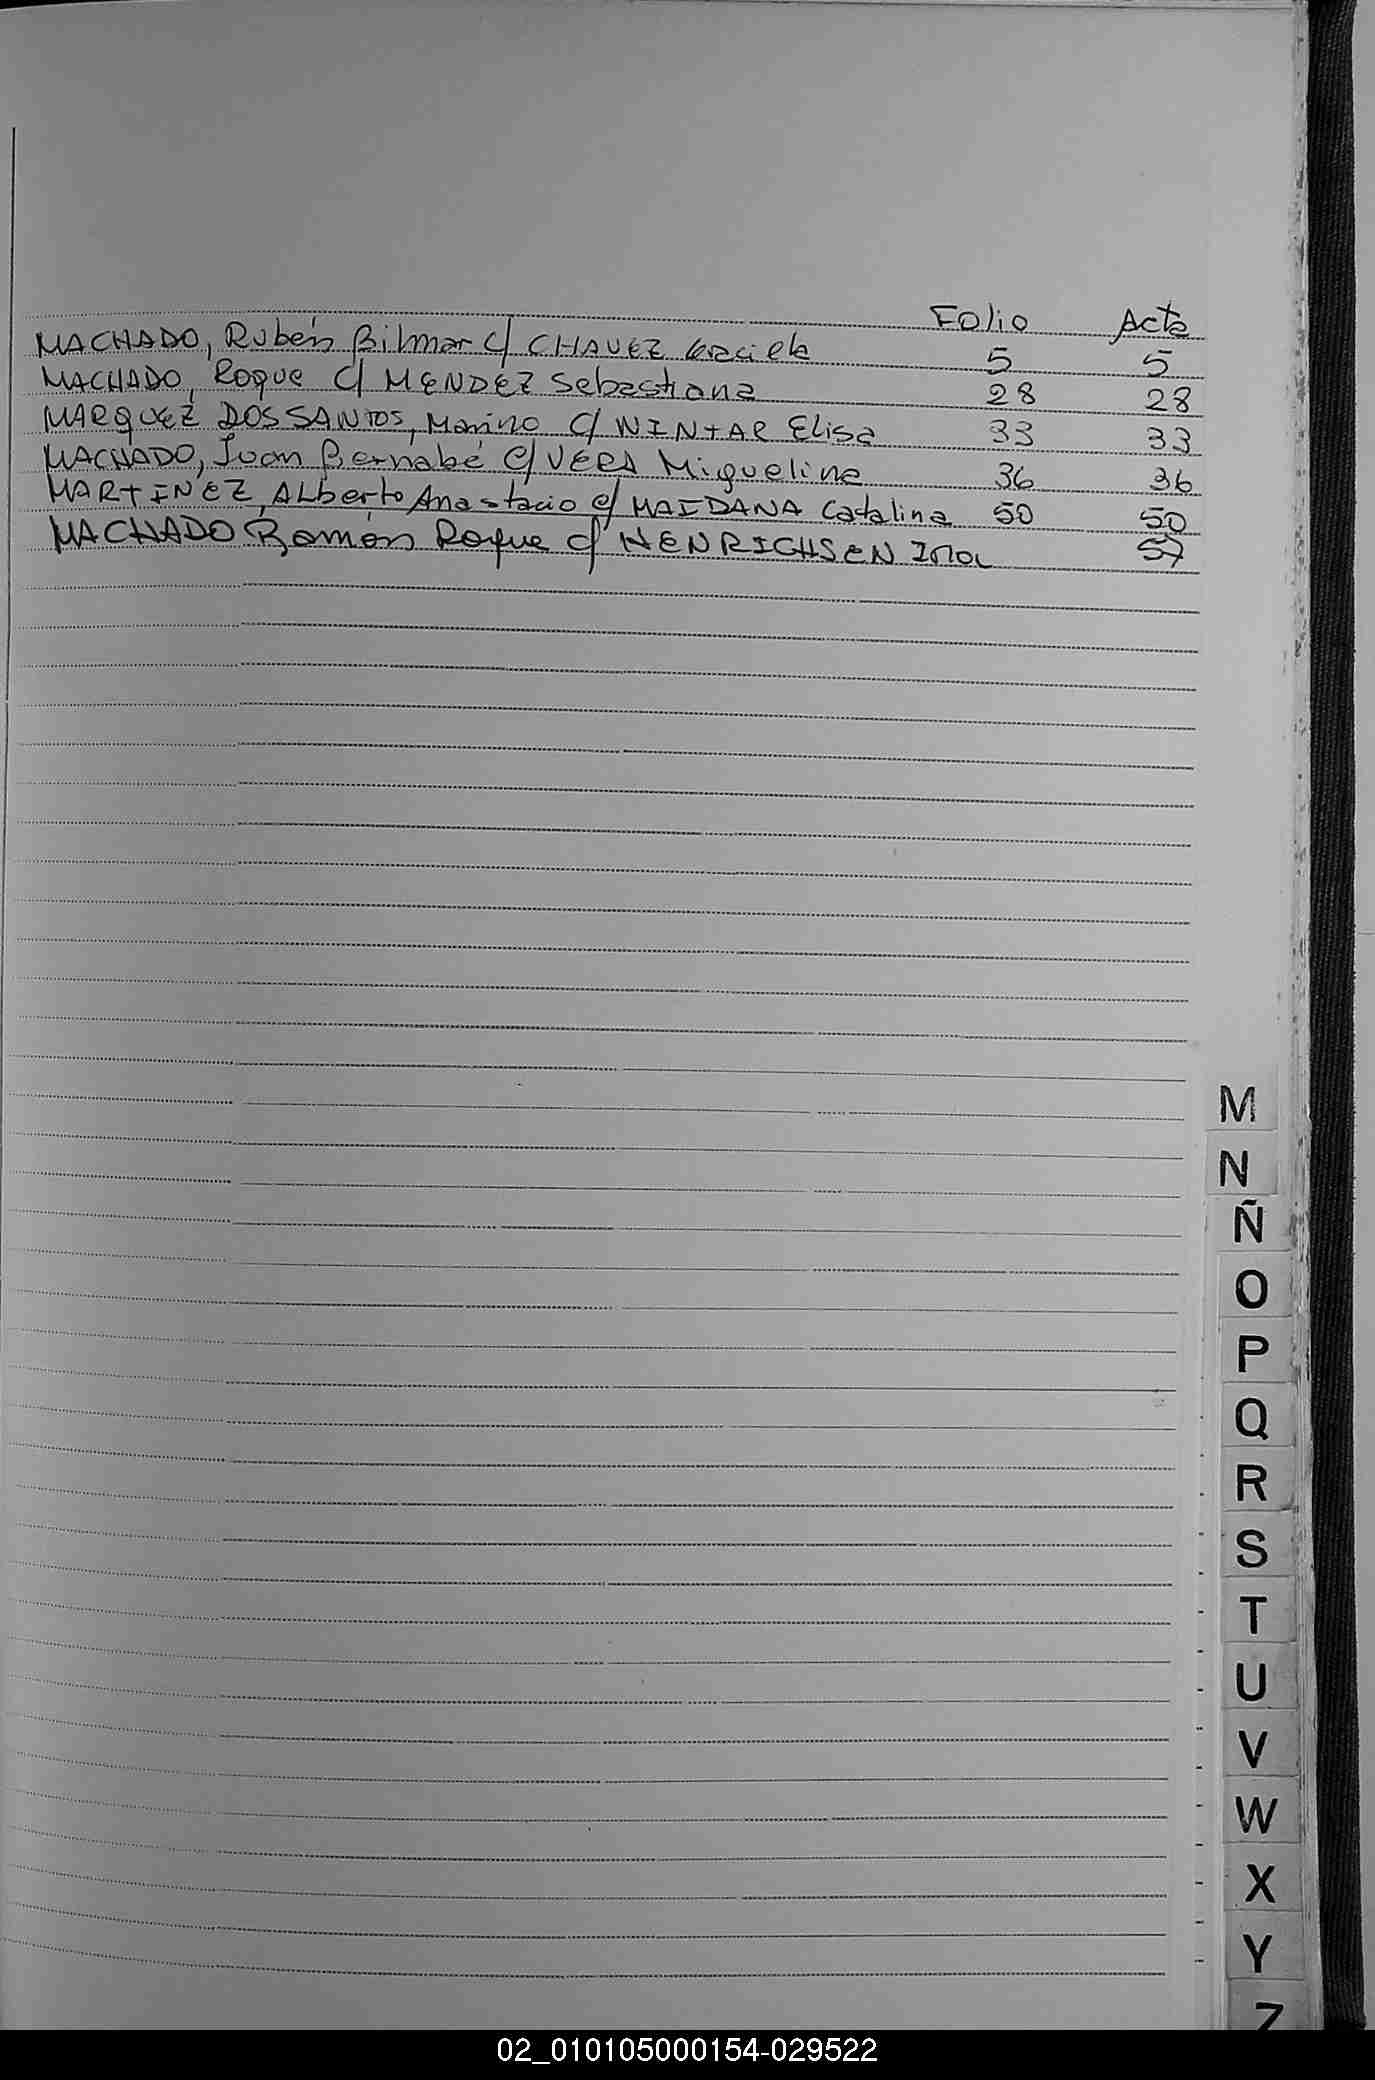 Folio Acta
MACHADO, Rubén Bilmar c/ CHAVEZ Graciela 5 5
MACHADO, Roque c/ MENDEZ Sebastiana 28 28
MARQUEZ DOS SANTOS, Marino c/ WINTAR Elisa 33 33
MACHADO, Juan Bernabé c/ VERA Miguelina 36 36
MARTINEZ, Alberto Anastacio c/ MAIDANA Catalina 50 50
MACHADO Ramón Roque c/ HENRICHSEN Irma 57
M
N
Ñ
O
P
Q
R
S
T
U
V
W
X
Y
Z
02_010105000154-029522